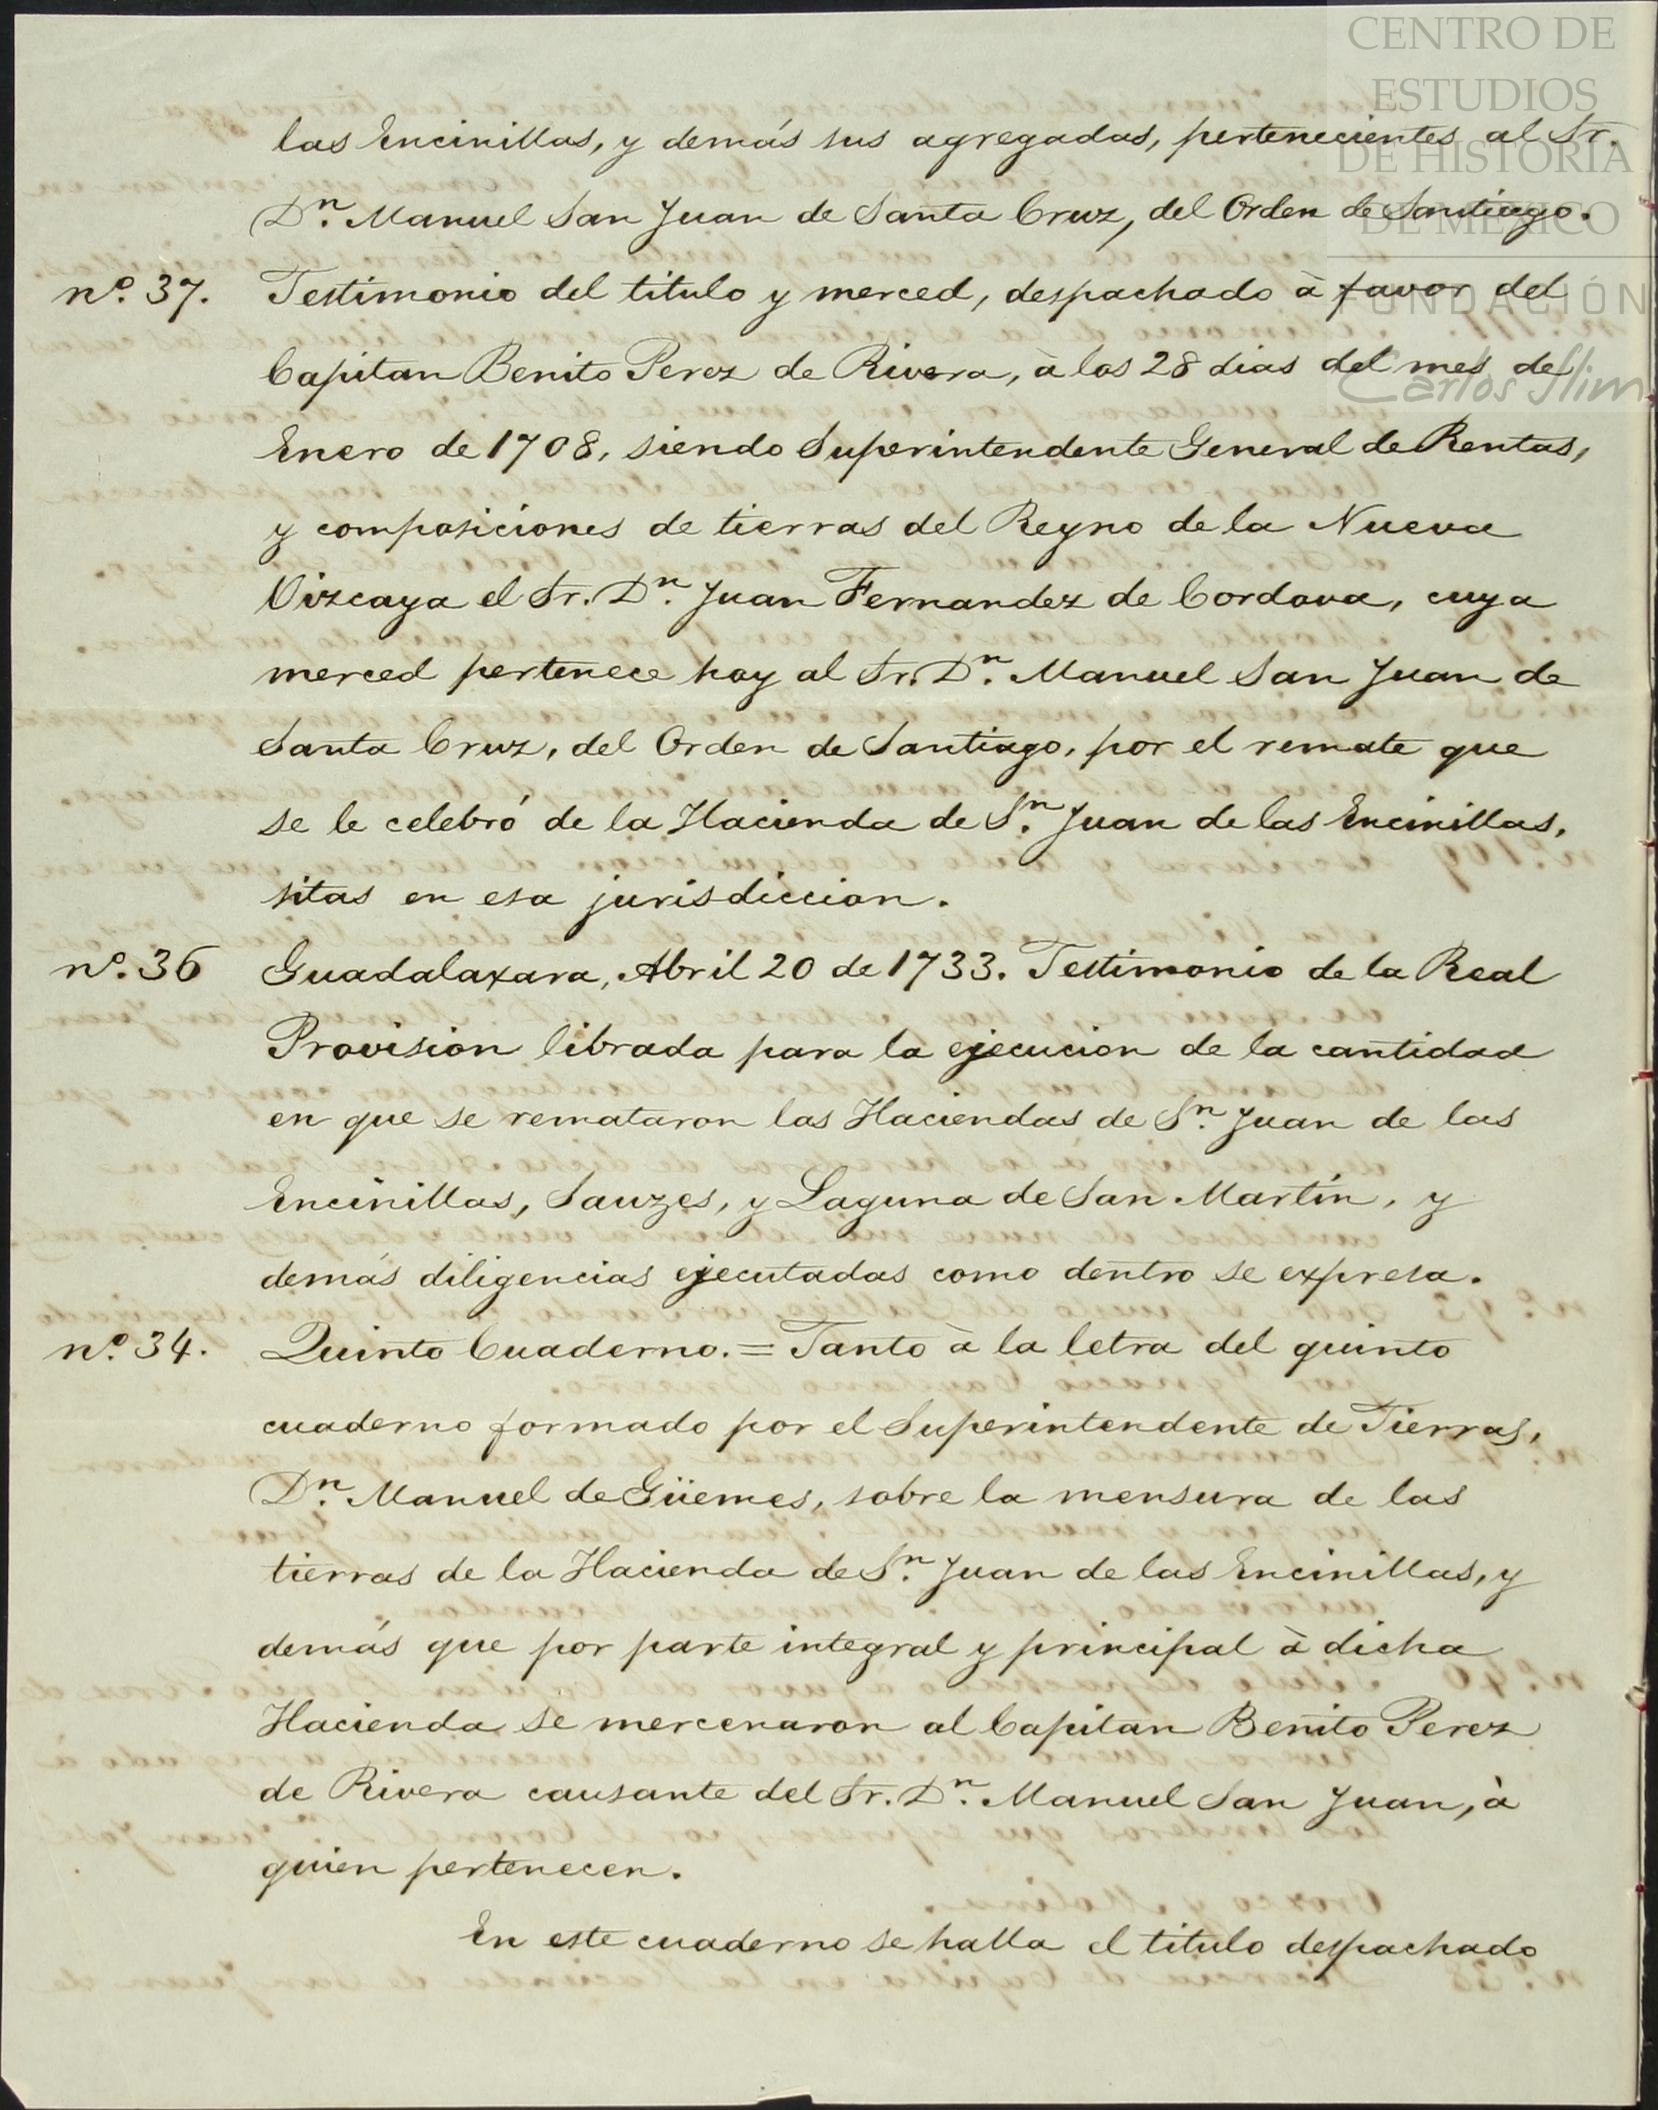 CENTRO DE
ESTUDIOS
DE HISTORIA
DE MÉXICO
FUNDACIÓN
Carlos Slim
las Encinillas, y demás sus agregadas, pertenecientes al Sr.
Dn. Manuel San Juan de Santa Cruz, del Orden de Santiago.
no. 37. Testimonio del titulo y merced, despachado à favor del
Capitan Benito Perez de Rivera, à los 28 dias del mes de
Enero de 1708, siendo Superintendente General de Rentas,
y composiciones de tierras del Reyno de la Nueva
Vizcaya el Sr. Dn. Juan Fernandez de Cordova, cuya
merced pertenece hoy al Sr. Dn. Manuel San Juan de
Santa Cruz, del Orden de Santiago, por el remate que
se le celebró de la Hacienda de Sn. Juan de las Encinillas,
sitas en esa jurisdiccion.
no. 36 Guadalaxara, Abril 20 de 1733. Testimonio de la Real
Provision librada para la ejecucion de la cantidad
en que se remataron las Haciendas de Sn. Juan de las
Encinillas, Sauzes, y Laguna de San Martin, y
demás diligencias ejecutadas como dentro se expresa.
no. 34. Quinto Cuaderno. = Tanto à la letra del quinto
cuaderno formado por el Superintendente de Tierras,
Dn. Manuel de Güemes, sobre la mensura de las
tierras de la Hacienda de Sn. Juan de las Encinillas, y
demás que por parte integral y principal à dicha
Hacienda se mercenaron al Capitan Benito Perez
de Rivera causante del Sr. Dn. Manuel San Juan, à
quien pertenecen.
En este cuaderno se halla el titulo despachado